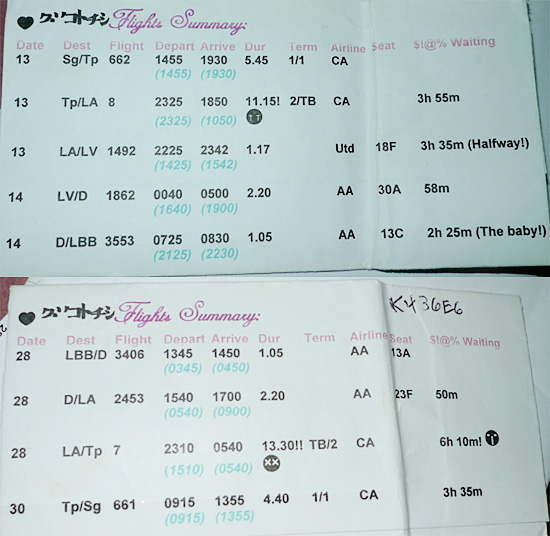 Flights Summary:
Date Dest Flight Depart Arrive Dur Term Airline Seat $!@% Waiting
13 Sg/Tp 662 1455 1930 5.45 1/1 CA
(1455) (1930)
13 Tp/LA 8 2325 1850 11.15! 2/TB CA 3h 55m
(2325) (1050)
13 LA/LV 1492 2225 2342 1.17 Utd 18F 3h 35m (Halfway!)
(1425) (1542)
14 LV/D 1862 0040 0500 2.20 AA 30A 58m
(1640) (1900)
14 D/LBB 3553 0725 0830 1.05 AA 13C 2h 25m (The baby!)
(2125) (2230)
Flights Summary:
K436E6
Date Dest Flight Depart Arrive Dur Term Airline Seat $!@% Waiting
28 LBB/D 3406 1345 1450 1.05 AA 13A
(0345) (0450)
28 D/LA 2453 1540 1700 2.20 AA 23F 50m
(0540) (0900)
28 LA/Tp 7 2310 0540 13.30!! TB/2 CA 6h 10m!
(1510) (0540) XX
30 Tp/Sg 661 0915 1355 4.40 1/1 CA 3h 35m
(0915) (1355)